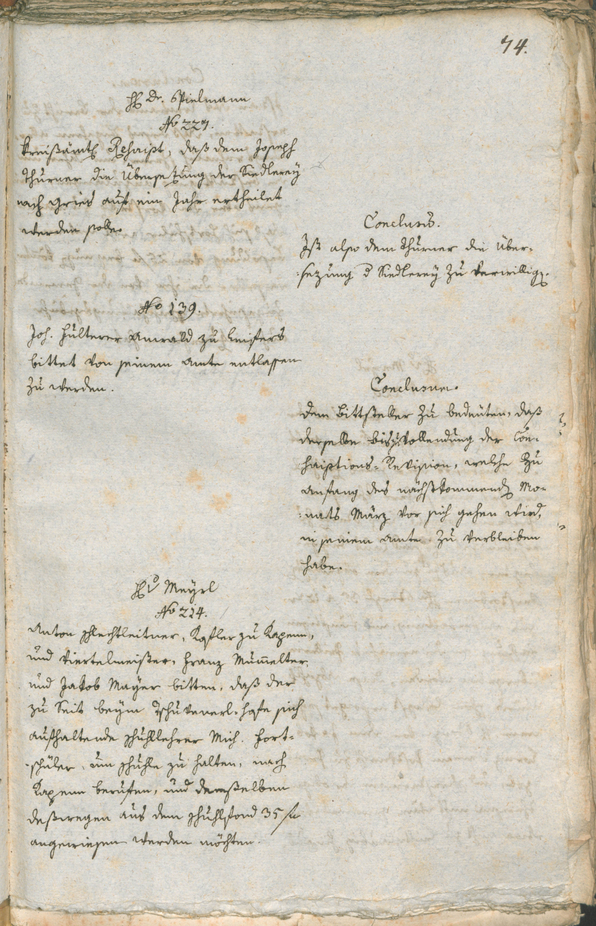 74.
H. Dr. Spielmann
No 227.
Kreißamtl. Rescript, daß dem Joseph
Thurner die Übersetzung der Siedlerey
nach Gries auf ein Jahr ertheilet
werden solle.
Conclusum.
Ist also dem Thurner die Über-
setzung d Siedlerey zu verwillig.
No 139.
Joh. Hülterer Anwald zu Leifers
bittet von seinem Amte entlassen
zu werden.
Conclusum.
Dem Bittsteller zu bedeuten, daß
derselbe bis Vollendung der Con-
scriptions-Revision, welche zu
Anfang des nächstkommend Mo-
nats März vor sich gehen wird,
in seinem Amte zu verbleiben
habe.
H. v Meyrl
No 224.
Anton Schlechtleitner, Kasler zu Kapenn,
und Viertelmeister, Franz Mumelter
und Jakob Mayer bitten, daß der
zu Seit beym hofe sich
aufhaltende Schullehrer Mich. Fort-
schüler, um Schule zu halten, nach
Kapenn berufen, und demselben
deßwegen aus dem Schulfond 35 f
angewiesen werden möchten.